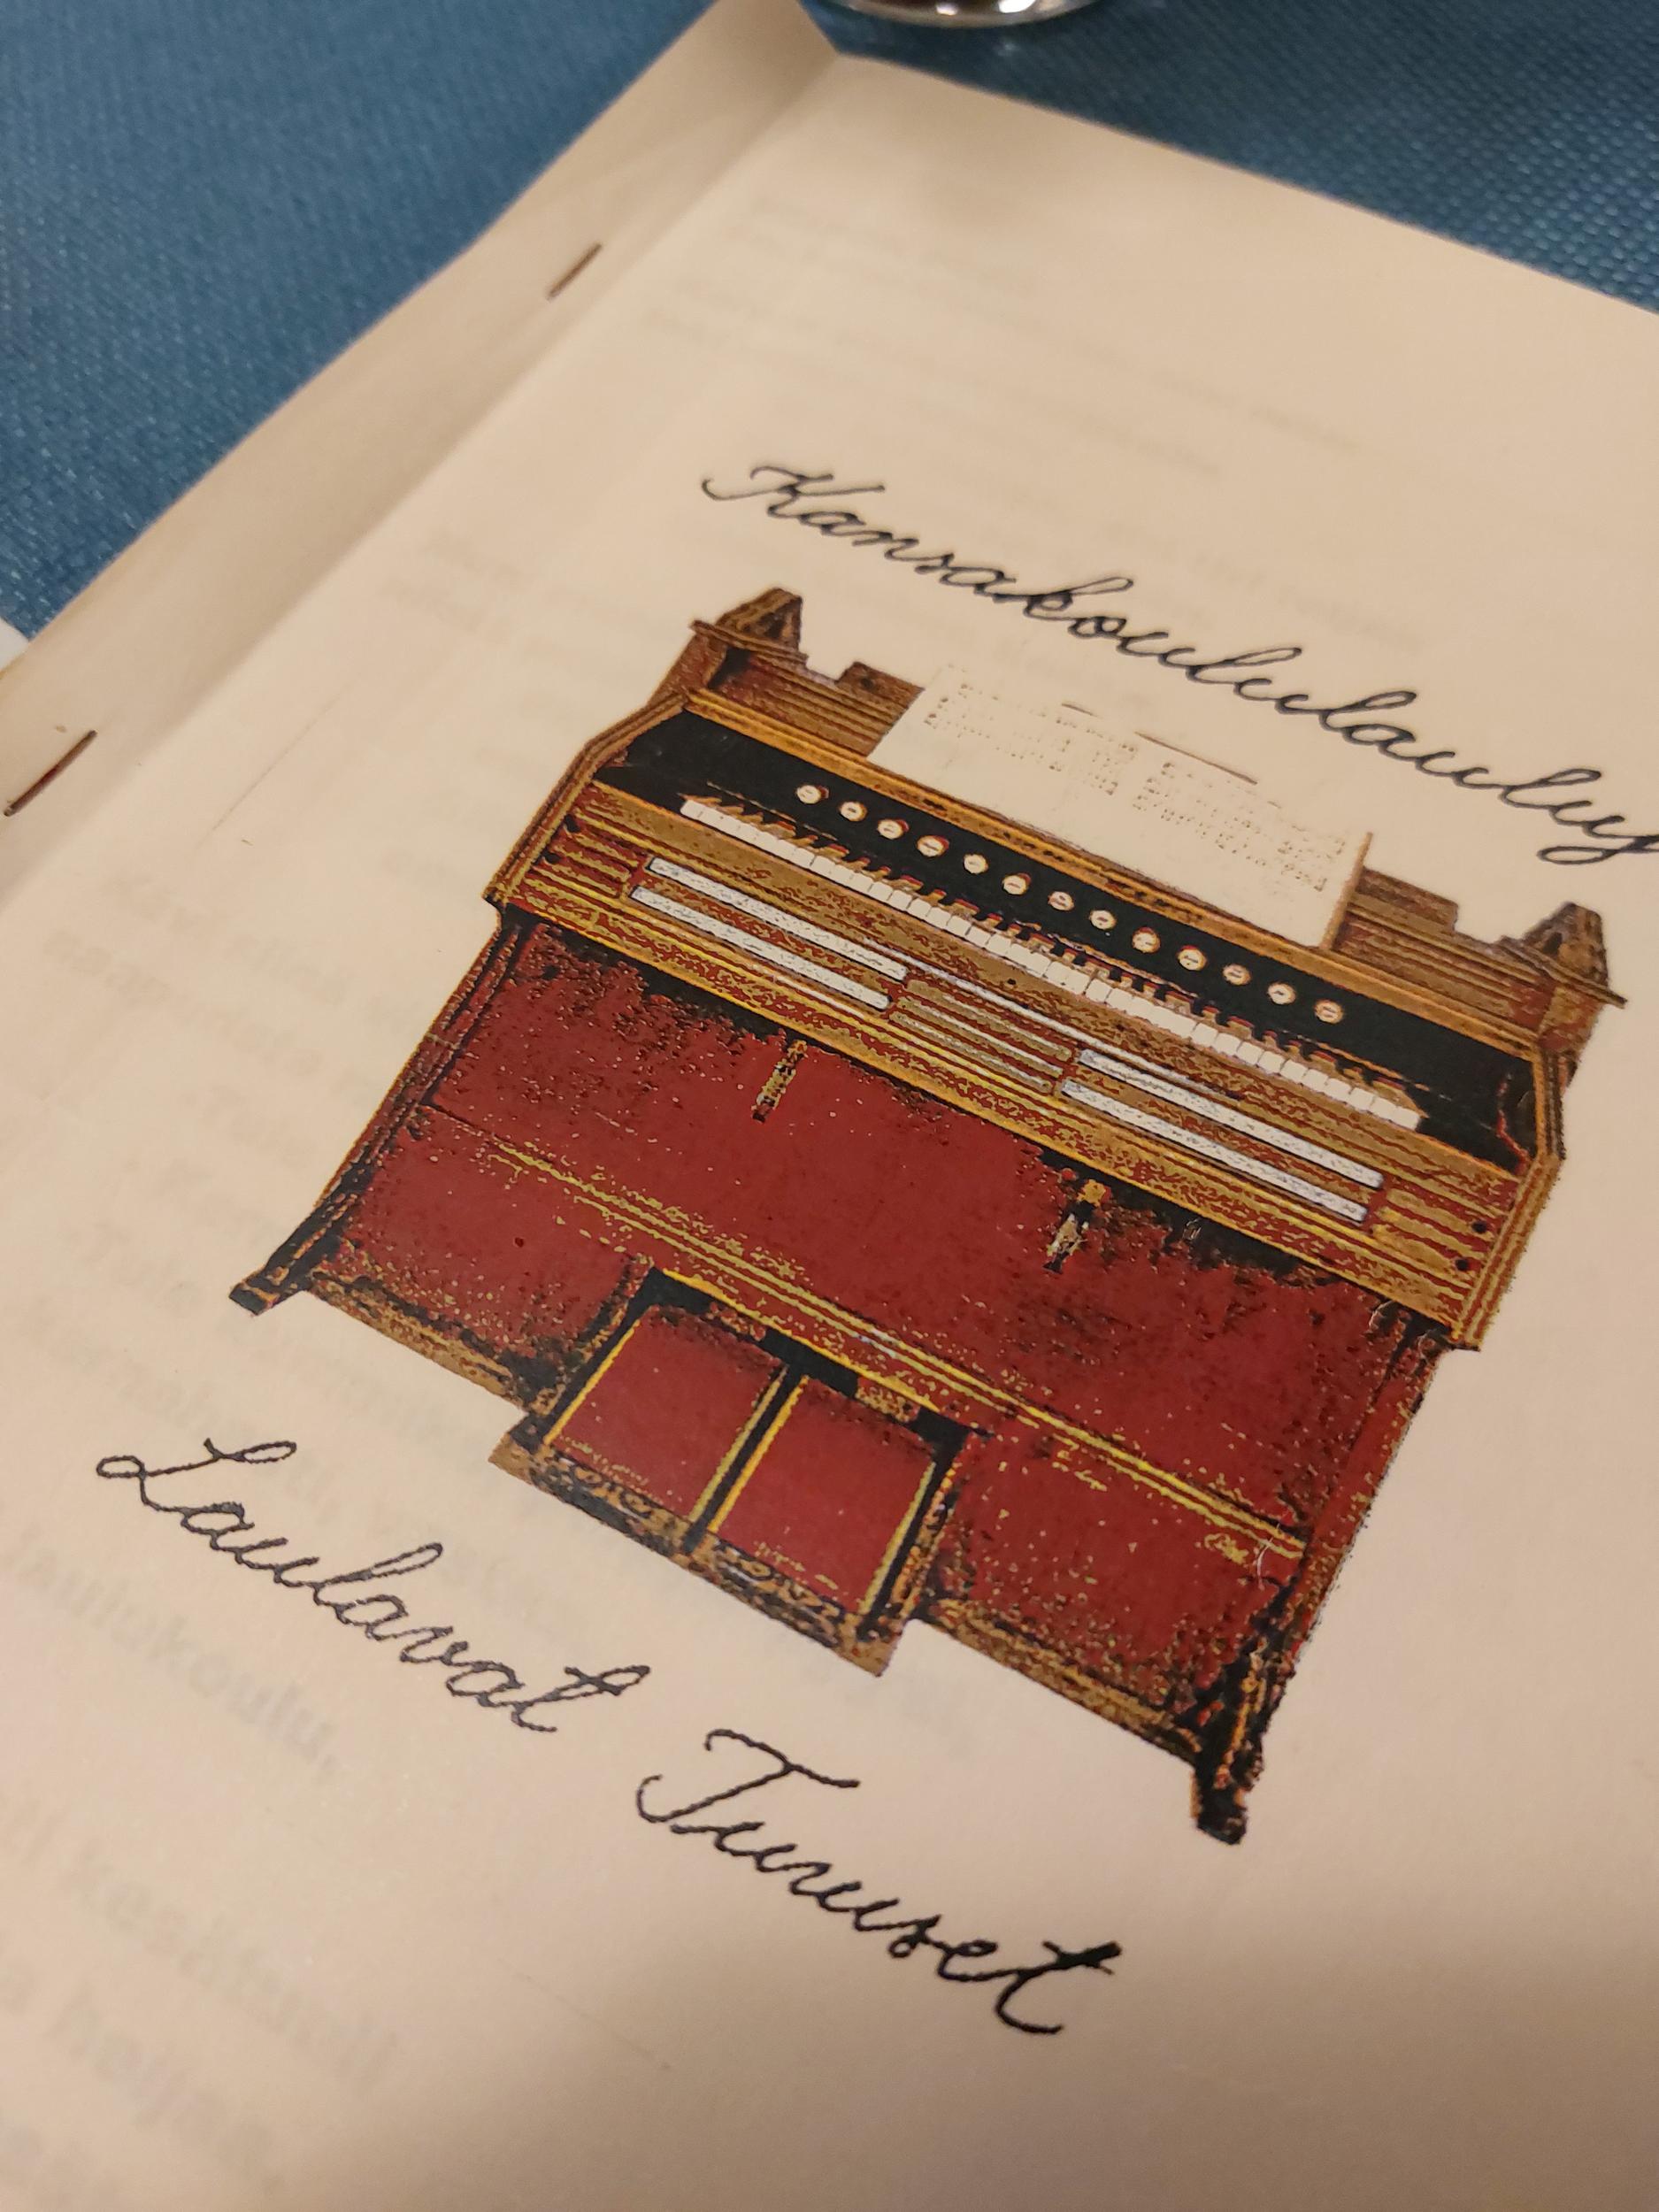 Kansakoululauluj
Laulavat Turuset